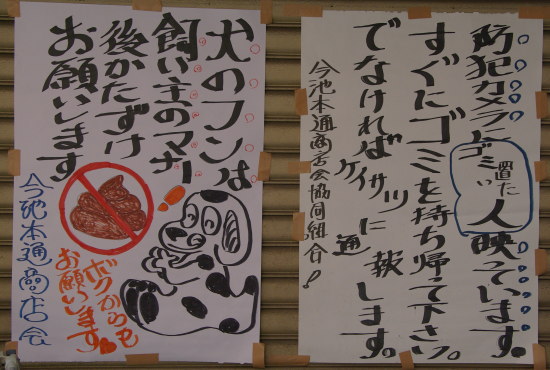 犬のフンは
飼い主のマナー
後かたずけ
お願いします
ボクからも
お願いします
今池本通商店会
防犯カメラにゴミ置いた人映っています。
すぐにゴミを持ち帰って下さい。
でなければケイサツに通報します。
今池本通商店会協同組合!